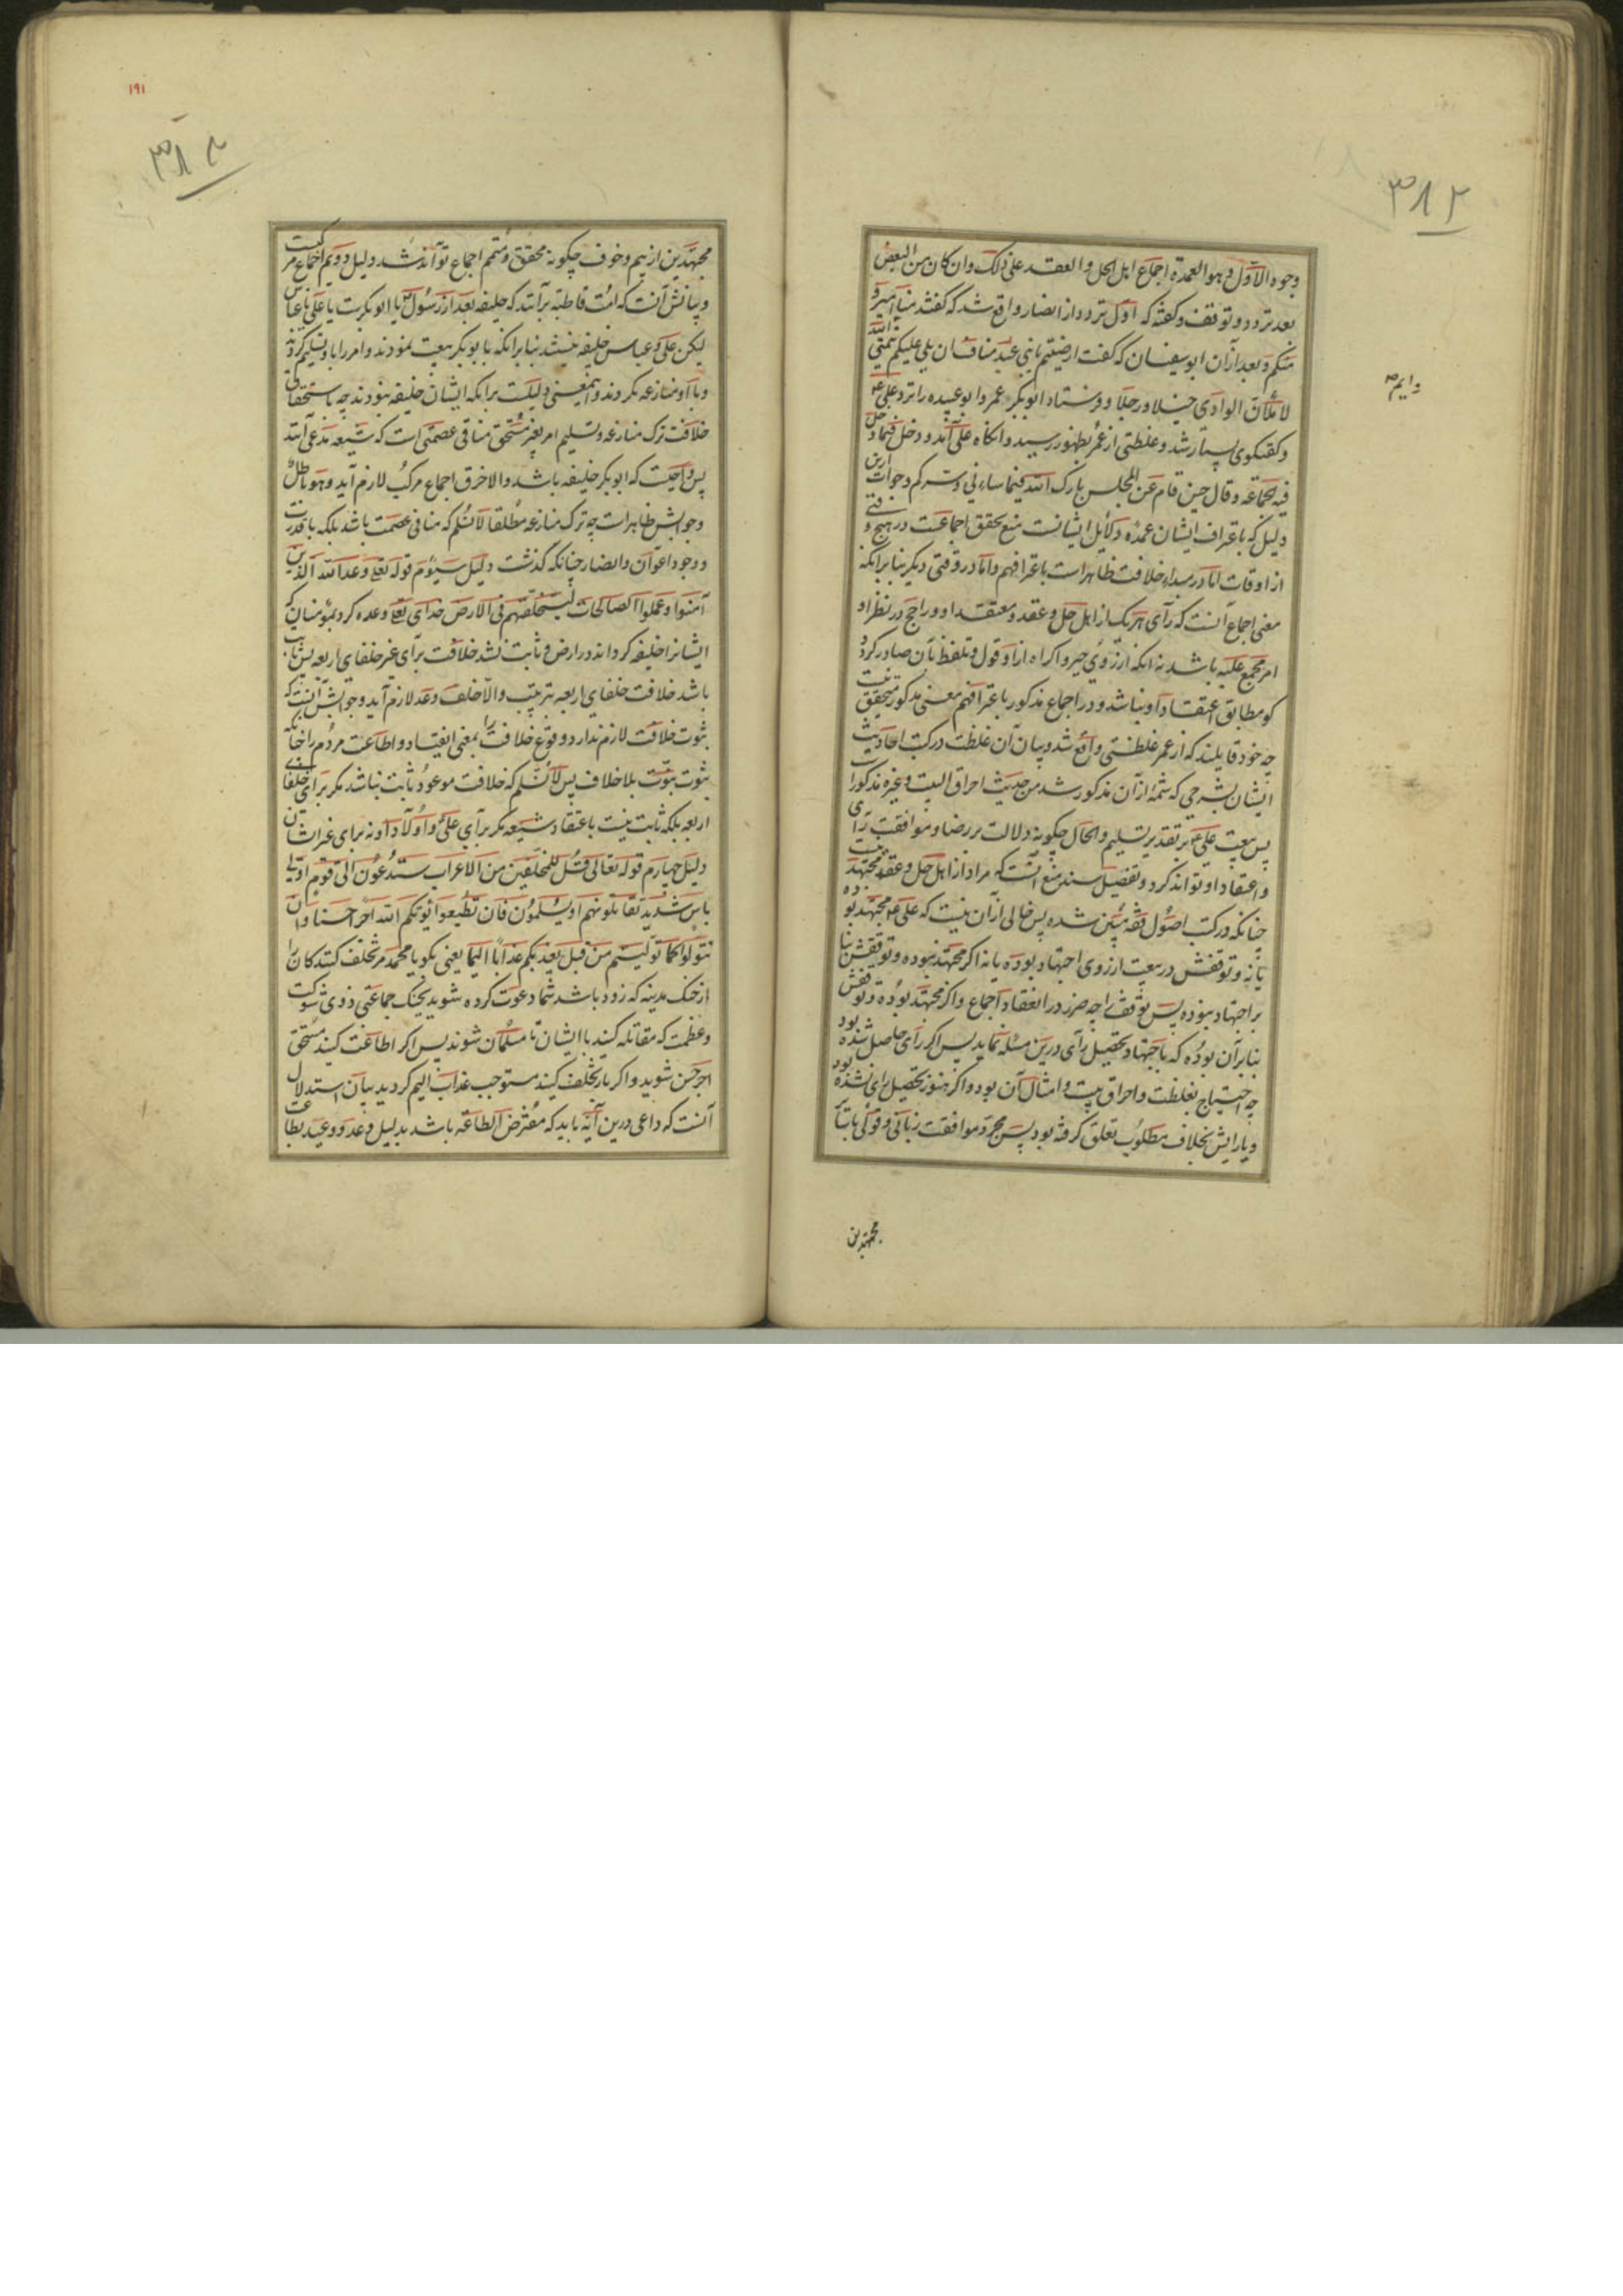 ۳۸۲
وجوه الاوّل و هو العمدة اجماع اهل الحل و العقد علی ذلک وان کان من البعض
بعد تردد و توقف و گفته که اوّل تردد از انصار واقع شد که گفتند منا امیر و
منکم و بعد از آن ابو سفیان که گفت ارضیتم یا بنی عبد مناف ان یلی علیکم تیمی
لاملأن الوادی خیلا و رجلا و فرستاد ابوبکر عمر و ابو عبیده را نزد علی ع
و ایم صح
و گفتگوی بسیار شد و غلظتی از عمر بظهور رسید و انگاه علی آمد و دخل فیما دخل
فیه الجماعة و قال حین قام عن المجلس بارک الله فیما ساءنی و سرکم و جواب ازین
دلیل که باعتراف ایشان عمده دلایل ایشانست منع تحقق اجماعست در هیچ وقتی
از اوقات اما در مبداء خلافت ظاهر است باعترافهم و اما در وقتی دیگر بنابر انکه
معنی اجماع آنست که رأی هر یک از اهل حل و عقد و معتقد او و راجح در نظر او
امر مجمع علیه باشد نه انکه از روی جبر و اکراه از او قول و تلفظ بآن صادر گردد
کو مطابق اعتقاد او نباشد و در اجماع مذکور باعترافهم معنی مذکور متحقق نیست
چه خود قایلند که از عمر غلظتی واقع شد و بیان آن غلظت در کتب احادیث
ایشان بشرحی که شمهٔ از آن مذکور شد من حدیث احراق البیت و غیره مذکور است
پس بیعت علی ع بر تقدیر تسلیم و الحال چگونه دلالت بر رضا و موافقت رأی
و اعتقاد او تواند کرد و تفصیل سند منع آنست که مراد از اهل حل و عقد مجتهد نیست
چنانکه در کتب اصول فقه مبیّن شده پس خالی از آن نیست که علی ع مجتهد بوده
یا نه و توقفش در بیعت از روی اجتهاد بوده یا نه اگر مجتهد نبوده و توقفش بنا
بر اجتهاد نبوده پس توقفش را چه ضرر در انعقاد اجماع و اگر مجتهد بوده و توقفش
بنابر آن بوده که باجتهاد تحصیل رأی درین مسئله نماید پس اگر رأی حاصل شده بود
چه احتیاج بغلظت و احراق بیت و امثال آن بود و اگر هنوز تحصیل رأی نشده بود
و یا رایش بخلاف مطلوب تعلق گرفته بود پس مجرد موافقت زبانی و قولی
مجتهدین
۱۹۱
۳۸۳
مجتهدین از بیم و خوف چگونه محقق و متمم اجماع تواند شد دلیل دویم اجماع مرکبست
و بیانش آنست که امت قاطبة برآنند که خلیفه بعد از رسول یا ابوبکرست یا علی یا عباس
لیکن علی و عباس خلیفه نیستند بنابر انکه با بوبکر بیعت نمودند و امر را باو تسلیم کردند
و با او منازعه نکردند و اینمعنی دلیلست بر انکه ایشان خلیفه نبودند چه باستحقاق
خلافت ترک منازعه و تسلیم امر بغیر مستحق منافی عصمتی است که شیعه مدعی آنند
پس واجبست که ابوبکر خلیفه باشد و الا خرق اجماع مرکب لازم آید و هو باطل
و جوابش ظاهر است چه ترک منازعه مطلقا لانسلم که منافی عصمت باشد بلکه با قدرت
و وجود اعوان و انصار چنانکه گذشت دلیل سیوم قوله تعالی وعد الله الذین
آمنوا و عملوا الصالحات لیستخلفنهم فی الارض خدای تعالی وعده کرد بمؤمنان که
ایشانرا خلیفه گرداند در ارض و ثابت نشد خلافت برای غیر خلفای اربعه پس ثابت
باشد خلافت خلفای اربعه بترتیب و الا خلف وعد لازم آید و جوابش آنست که
ثبوت خلافت لازم ندارد وقوع خلافت را بمعنی انقیاد و اطاعت مردم را چنانکه
ثبوت نبوّت بلا خلاف پس لانسلم که خلافت موعود ثابت نباشد مگر برای خلفای
اربعه بلکه ثابت نیست باعتقاد شیعه مگر برای علی و اولاد او نه برای غیر ایشان
دلیل چهارم قوله تعالی قل للمخلفین من الاعراب ستدعون الی قوم اولی
باس شدید تقاتلونهم او یسلمون فان تطیعوا یؤتکم الله اجرا حسنا وان
تتولوا کما تولیتم من قبل یعذبکم عذابا الیما یعنی بگو یا محمد مر تخلف کنندکان را
از جنک مدینه که زود باشد شما دعوت کرده شوید بجنک جماعتی ذوی شوکت
و عظمت که مقاتله کنید با ایشان تا مسلمان شوند پس اگر اطاعت کنید مستحق
اجر حسن شوید و اگر باز تخلف کنید مستوجب عذاب الیم گردید بیان استدلال
آنست که داعی درین آیه باید که مفترض الطاعة باشد بدلیل وعد و وعید بطاعت